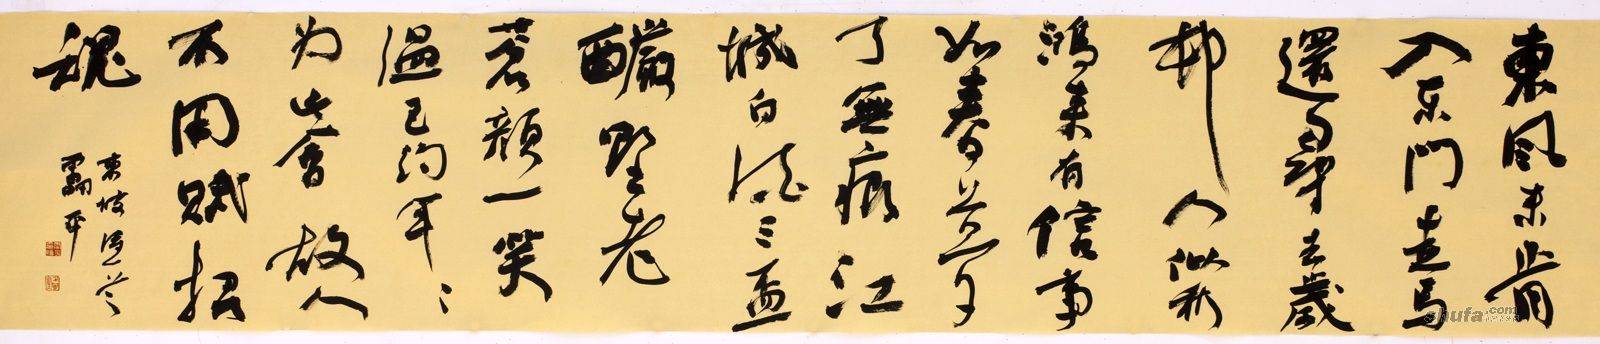 東風未肯
入东門走馬
還尋去歲
邨人似秋
鴻来有信事
如春夢
了無痕江
城白酒三盃
釅野老
蒼顏一笑
温已約年〻
为此會故人
不用賦招
魂
東坡
平
shufa.com